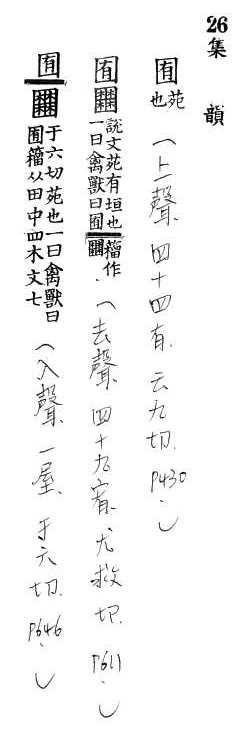 26集韻
囿苑也（上聲 四十四有. 云九切. P430.）
囿𡈹說文苑有垣也一曰禽獸曰囿籀作𡈹.（去聲 四十九宥. 尤救切. P611.）
囿𡈹于六切苑也一曰禽獸曰囿籀从田中四木文七（入聲 一屋. 于六切. P646.）